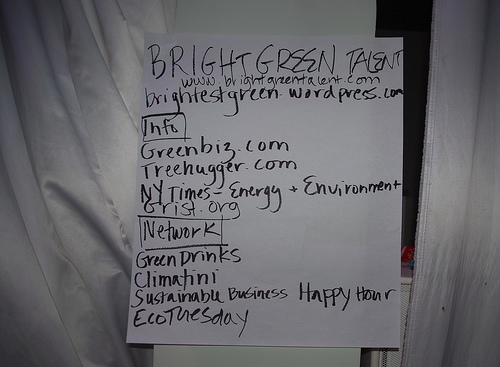 BRIGHT GREEN TALENT
www.brightgreentalent.com
brightestgreen.wordpress.com
Info
Greenbiz.com
Treehugger.com
NY Times - Energy + Environment
Grist.org
Network
Green Drinks
Climatini
Sustainable Business Happy Hour
EcoTuesday